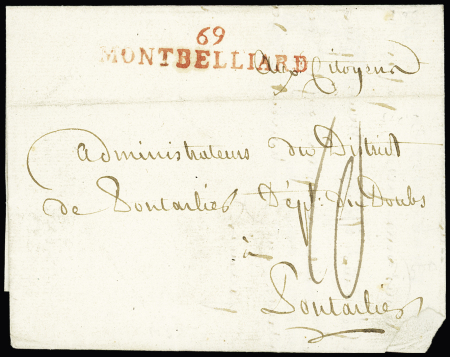 69
MONTBELLIARD
Aux Citoyens
Administrateurs du District
de Pontarlier Dépt. du Doubs
à
Pontarlier